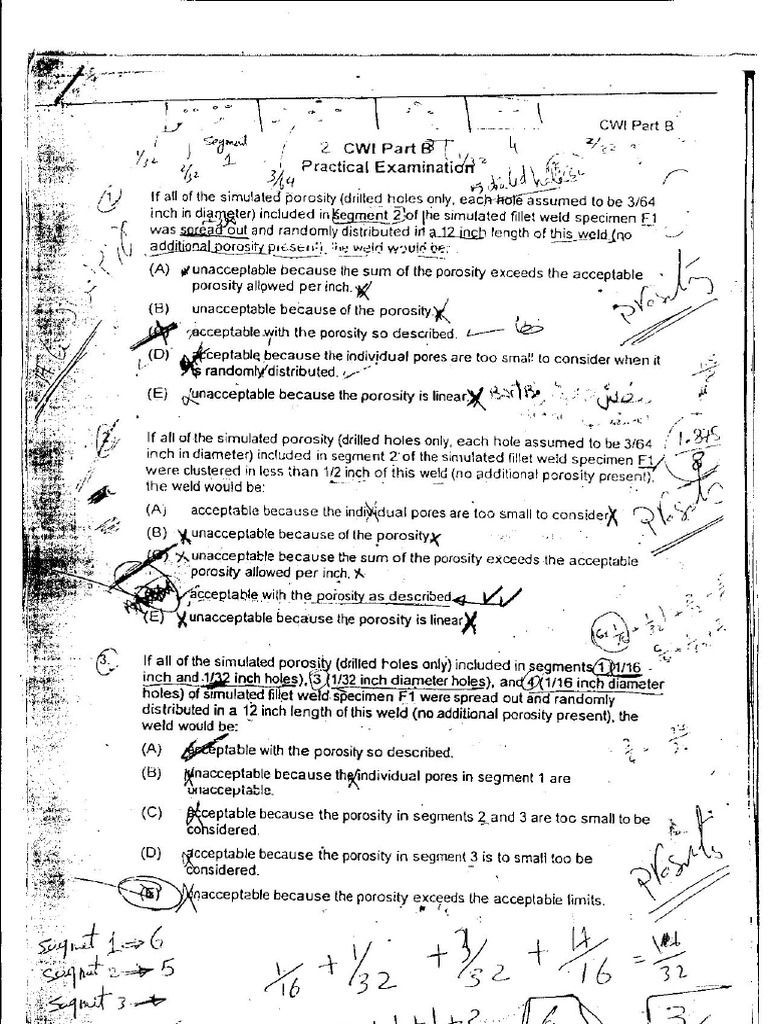 CWI Part B
2 CWI Part B
Practical Examination
segment
1
4
1/32
2/32
3/64
1. If all of the simulated porosity (drilled holes only, each hole assumed to be 3/64
inch in diameter) included in segment 2 of the simulated fillet weld specimen F1
was spread out and randomly distributed in a 12 inch length of this weld (no
additional porosity present), the weld would be:
(A) unacceptable because the sum of the porosity exceeds the acceptable
porosity allowed per inch.
(B) unacceptable because of the porosity.
acceptable with the porosity so described.
(D) acceptable because the individual pores are too small to consider when it
is randomly distributed.
(E) unacceptable because the porosity is linear.
Prosity
2. If all of the simulated porosity (drilled holes only, each hole assumed to be 3/64
inch in diameter) included in segment 2 of the simulated fillet weld specimen F1
were clustered in less than 1/2 inch of this weld (no additional porosity present),
the weld would be:
1.875
8
Prosity
(A) acceptable because the individual pores are too small to consider
(B) unacceptable because of the porosity
unacceptable because the sum of the porosity exceeds the acceptable
porosity allowed per inch.
acceptable with the porosity as described
(E) unacceptable because the porosity is linear
3. If all of the simulated porosity (drilled holes only) included in segments 1 (1/16
inch and 1/32 inch holes), 3 (1/32 inch diameter holes), and 4 (1/16 inch diameter
holes) of simulated fillet weld specimen F1 were spread out and randomly
distributed in a 12 inch length of this weld (no additional porosity present), the
weld would be:
(A) acceptable with the porosity so described.
(B) unacceptable because the individual pores in segment 1 are
unacceptable.
(C) acceptable because the porosity in segments 2 and 3 are too small to be
considered.
(D) acceptable because the porosity in segment 3 is to small too be
considered.
(E) unacceptable because the porosity exceeds the acceptable limits.
Prosity
segmet 1 → 6
segmet 2 → 5
segmet 3 →
1/16 + 1/32 + 3/32 + 4/16 =